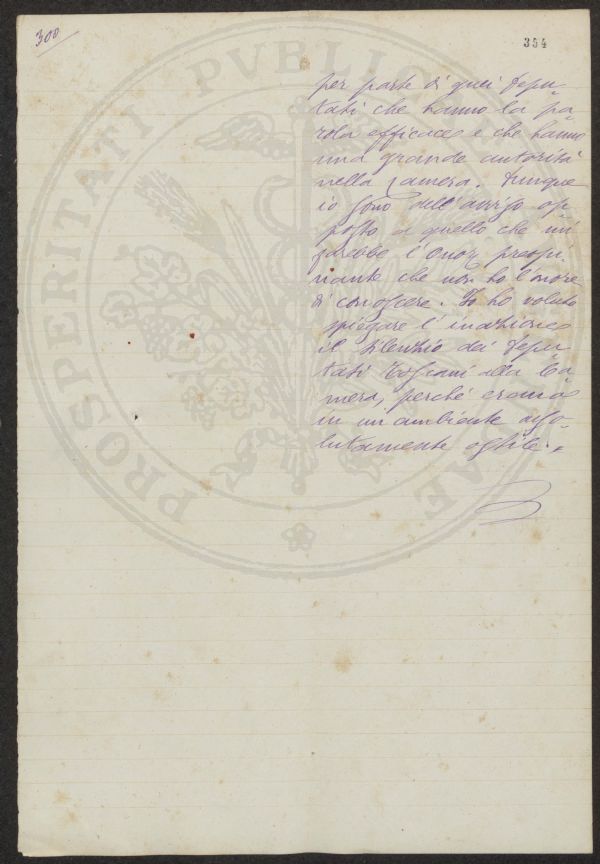 300
354
per parte di quei depu-
tati che hanno la pa-
rola efficace e che hanno
una grande autorità
nella Camera. Dunque
io sono dell'avviso op-
posto a quello che mi
sarebbe l'Onor. preopi-
nante che non ho l'onore
di conoscere. Io ho voluto
spiegare l'inazione e
il silenzio dei depu-
tati Toscani alla Ca-
mera, perché eravamo
in un ambiente asso-
lutamente ostile.
PROSPERITATI PVBLICAE